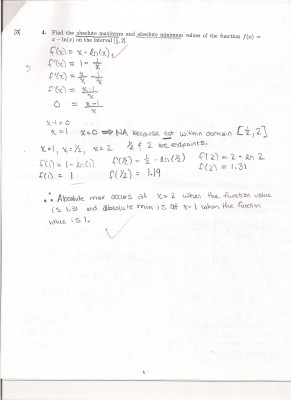 [3] 4. Find the absolute maximum and absolute minimum values of the function f(x) =
x − ln(x) on the interval [½, 2]
f(x) = x - ln(x)
f'(x) = 1 - 1/x
f'(x) = x/x - 1/x
f'(x) = x-1/x
0 = x-1/x
x-1=0
x=1 x=0 ⇒ NA because not within domain [½, 2]
x=1, x=½, x=2 ½ & 2 are endpoints.
f(1) = 1 - ln(1) f(½) = ½ - ln(½) f(2) = 2 - ln 2
f(1) = 1 f(½) = 1.19 f(2) = 1.31
∴ Absolute max occurs at x=2 when the function value
is 1.31 and absolute min is at x=1 when the function
value is 1.